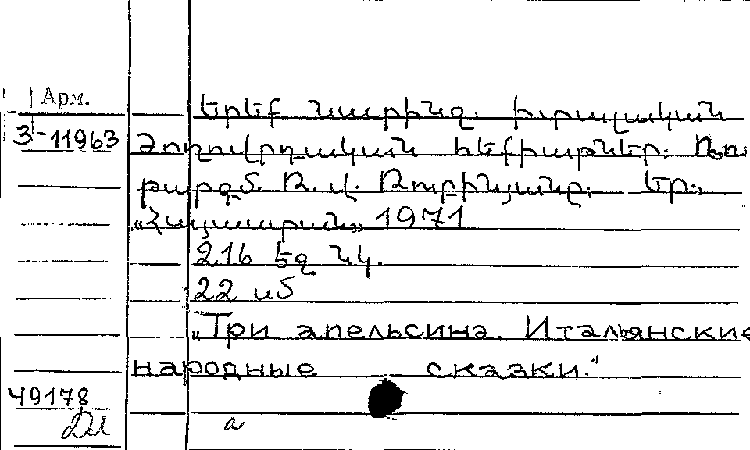 Арм.
3-11963
Երեք նարինջ. Իտալական
ժողովրդական հեքիաթներ:
թարգմ. Ռ. Վ. Եր.,
«Հայաստան» 1971
216 էջ նկ.
22 սմ
„Три апельсина. Итальянские
народные сказки."
49178
а